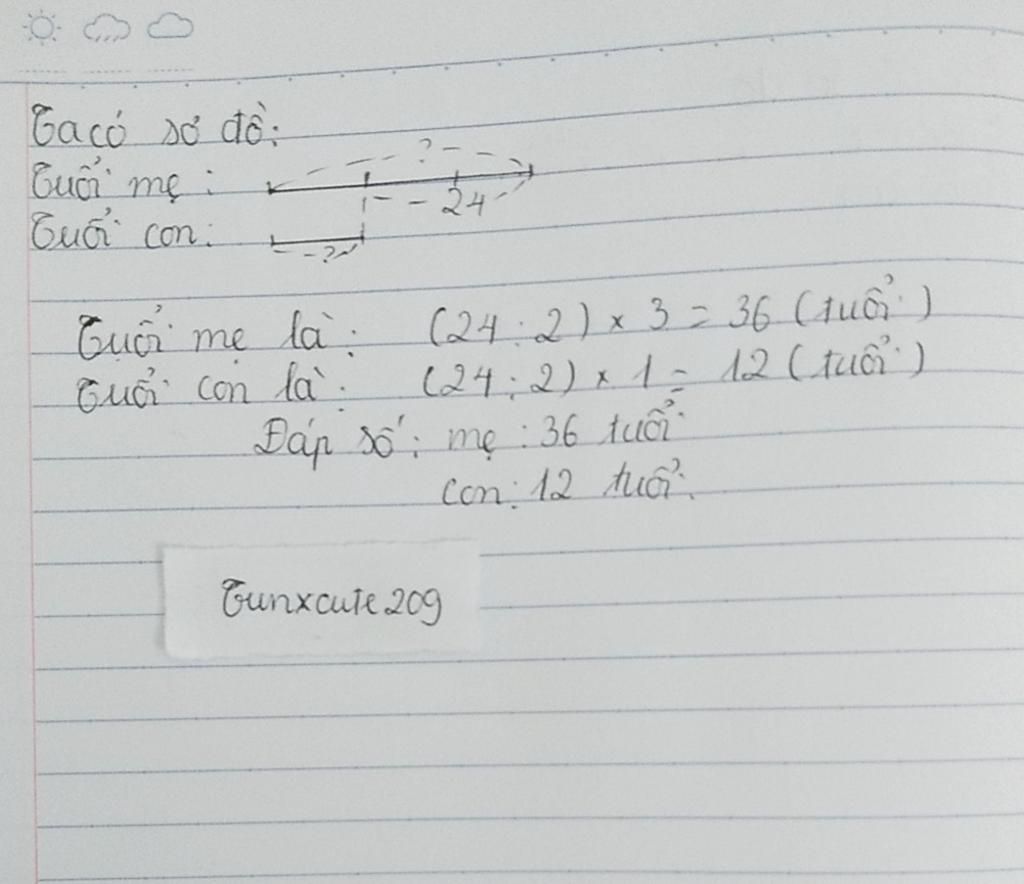 Ta có sơ đồ:
Tuổi mẹ :
?
24
Tuổi con:
?
Tuổi mẹ là: (24:2) × 3 = 36 (tuổi)
Tuổi con là: (24:2) × 1 = 12 (tuổi)
Đáp số: mẹ : 36 tuổi
con: 12 tuổi.
Tunxcute209